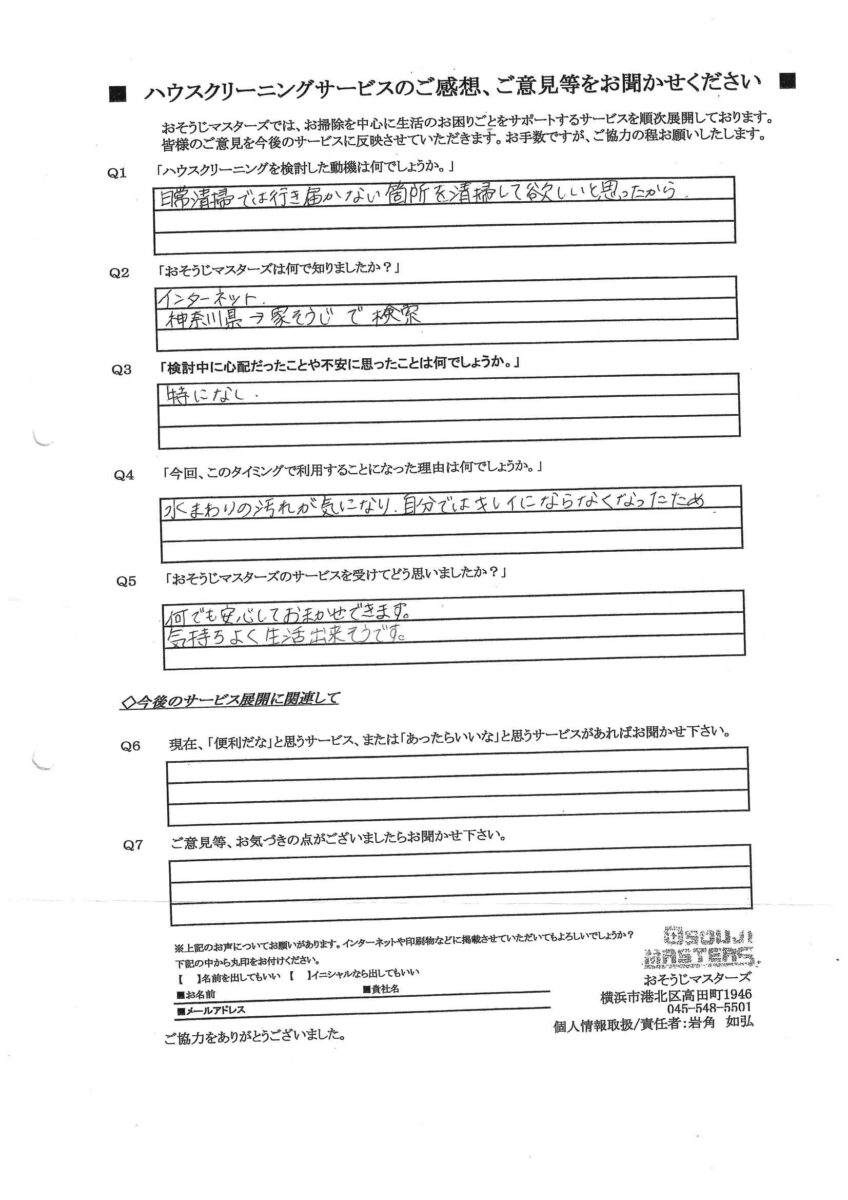 ■ ハウスクリーニングサービスのご感想、ご意見等をお聞かせください ■
おそうじマスターズでは、お掃除を中心に生活のお困りごとをサポートするサービスを順次展開しております。
皆様のご意見を今後のサービスに反映させていただきます。お手数ですが、ご協力の程お願いしたします。
Q1 「ハウスクリーニングを検討した動機は何でしょうか。」
日常清掃では行き届かない箇所を清掃して欲しいと思ったから.
Q2 「おそうじマスターズは何で知りましたか？」
インターネット.
神奈川県→家そうじ で 検索
Q3 「検討中に心配だったことや不安に思ったことは何でしょうか。」
特になし.
Q4 「今回、このタイミングで利用することになった理由は何でしょうか。」
水まわりの汚れが気になり.自分ではキレイにならなくなったため
Q5 「おそうじマスターズのサービスを受けてどう思いましたか？」
何でも安心しておまかせできます。
気持ちよく生活出来そうです。
◇今後のサービス展開に関連して
Q6 現在、「便利だな」と思うサービス、または「あったらいいな」と思うサービスがあればお聞かせ下さい。
Q7 ご意見等、お気づきの点がございましたらお聞かせ下さい。
※上記のお声についてお願いがあります。インターネットや印刷物などに掲載させていただいてもよろしいでしょうか？
下記の中から丸印をお付けください。
【 】名前を出してもいい 【 】イニシャルなら出してもいい
■お名前 ■貴社名
■メールアドレス
ご協力をありがとうございました。
OSOUJI
MASTERS
おそうじマスターズ
横浜市港北区高田町1946
045-548-5501
個人情報取扱/責任者:岩角 如弘